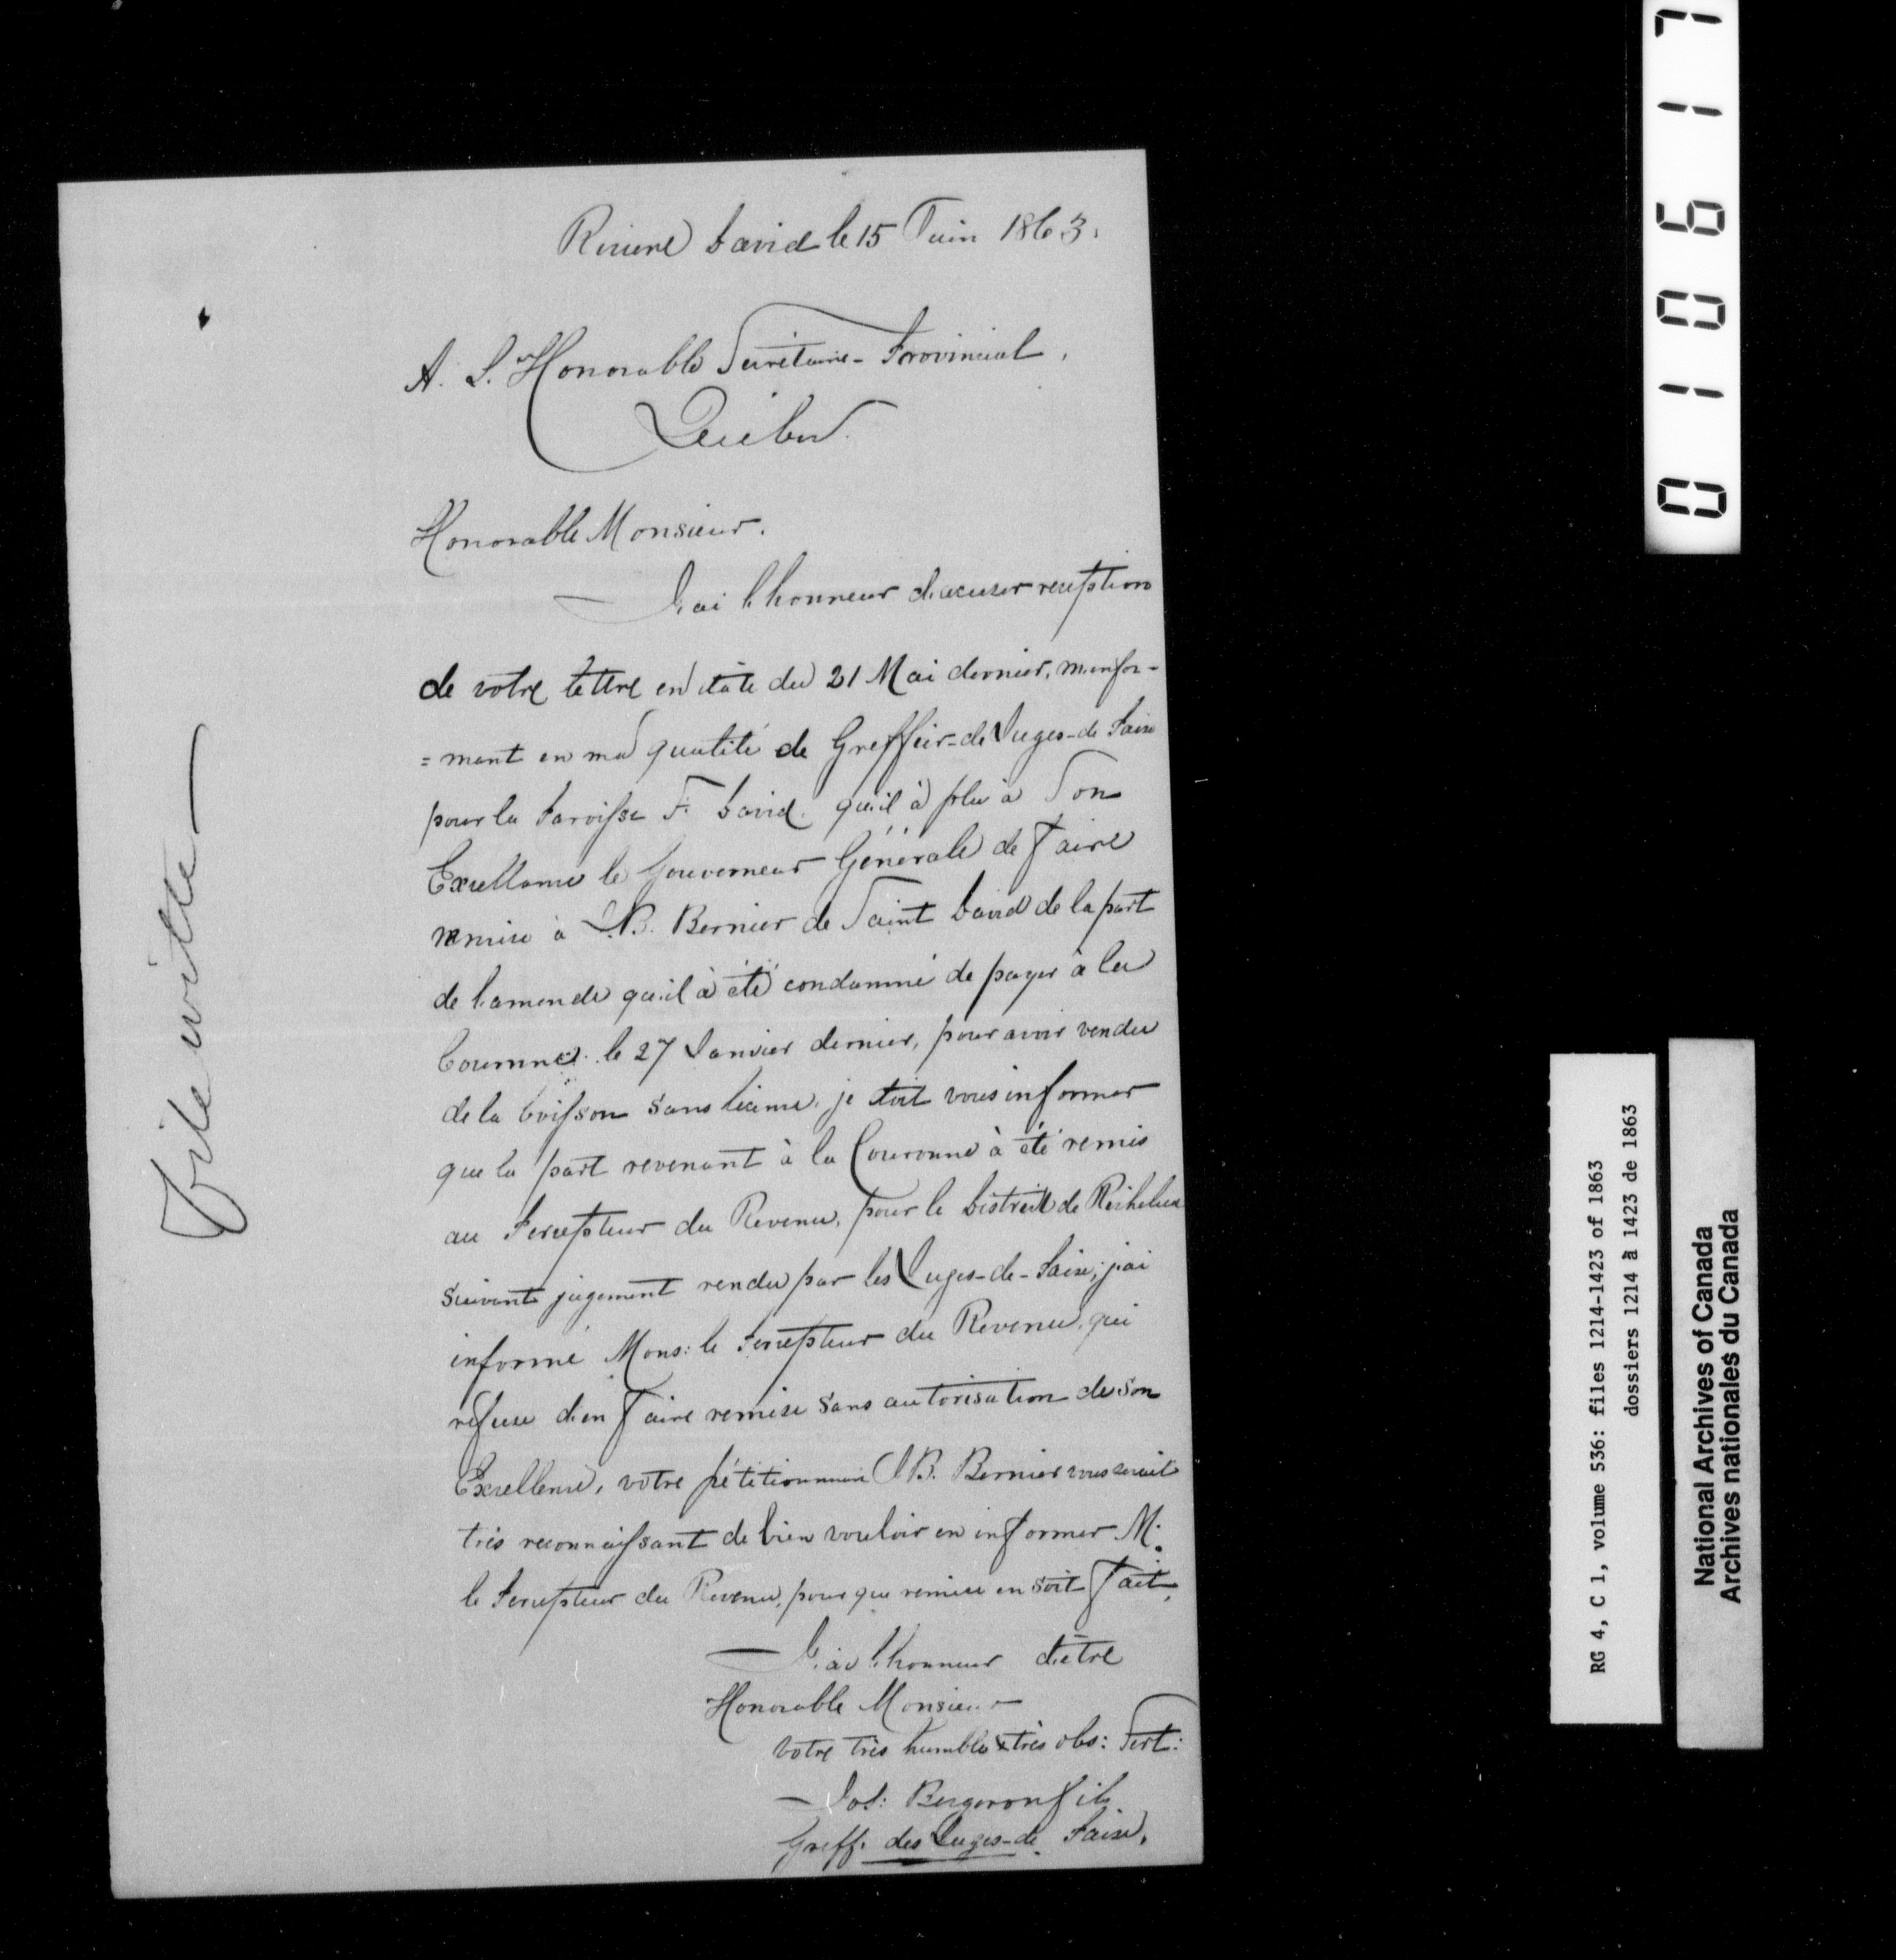 Riviere David le 15 Juin 1863.
A. L'Honorable Secrétaire-Provincial,
Québec.
Honorable Monsieur.
J'ai l'honneur d'accuser reception
de votre lettre en date du 21 Mai dernier, m'infor-
=mant en ma qualité de Greffier-de Juges-de Paix
pour la Paroisse St. David. qu'il à plu à Son
Excellence le Gouverneur Générale de faire
remise à J.B. Bernier de Saint David de la part
de l'amende qu'il à été condamné de payer à la
le 27 Janvier dernier, pour avoir vendu
de la boisson sans licence. je doit vous informer
que la part revenant à la Couronne à été remis
au Percepteur du Revenu, pour le District de Richelieu
suivant jugement rendu par les Juges-de-Paix; j'ai
informé Mons: le Percepteur du Revenu, qui
refuse d'en faire remise sans autorisation de son
Excellence, votre pétitionnaire J.B. Bernier vous serait
très reconnaissant de bien vouloir en informer M.
le Percepteur du Revenu, pour que remise en soit fait,
J'ai l'honneur d'être
Honorable Monsieur
votre très humble & très obs: Sert:
Jos: Bergeron fils
Greff. des Juges-de Paix.
File with
011061
RG 4, C 1, volume 536: files 1214-1423 of 1863
dossiers 1214 à 1423 de 1863
National Archives of Canada
Archives nationales du Canada